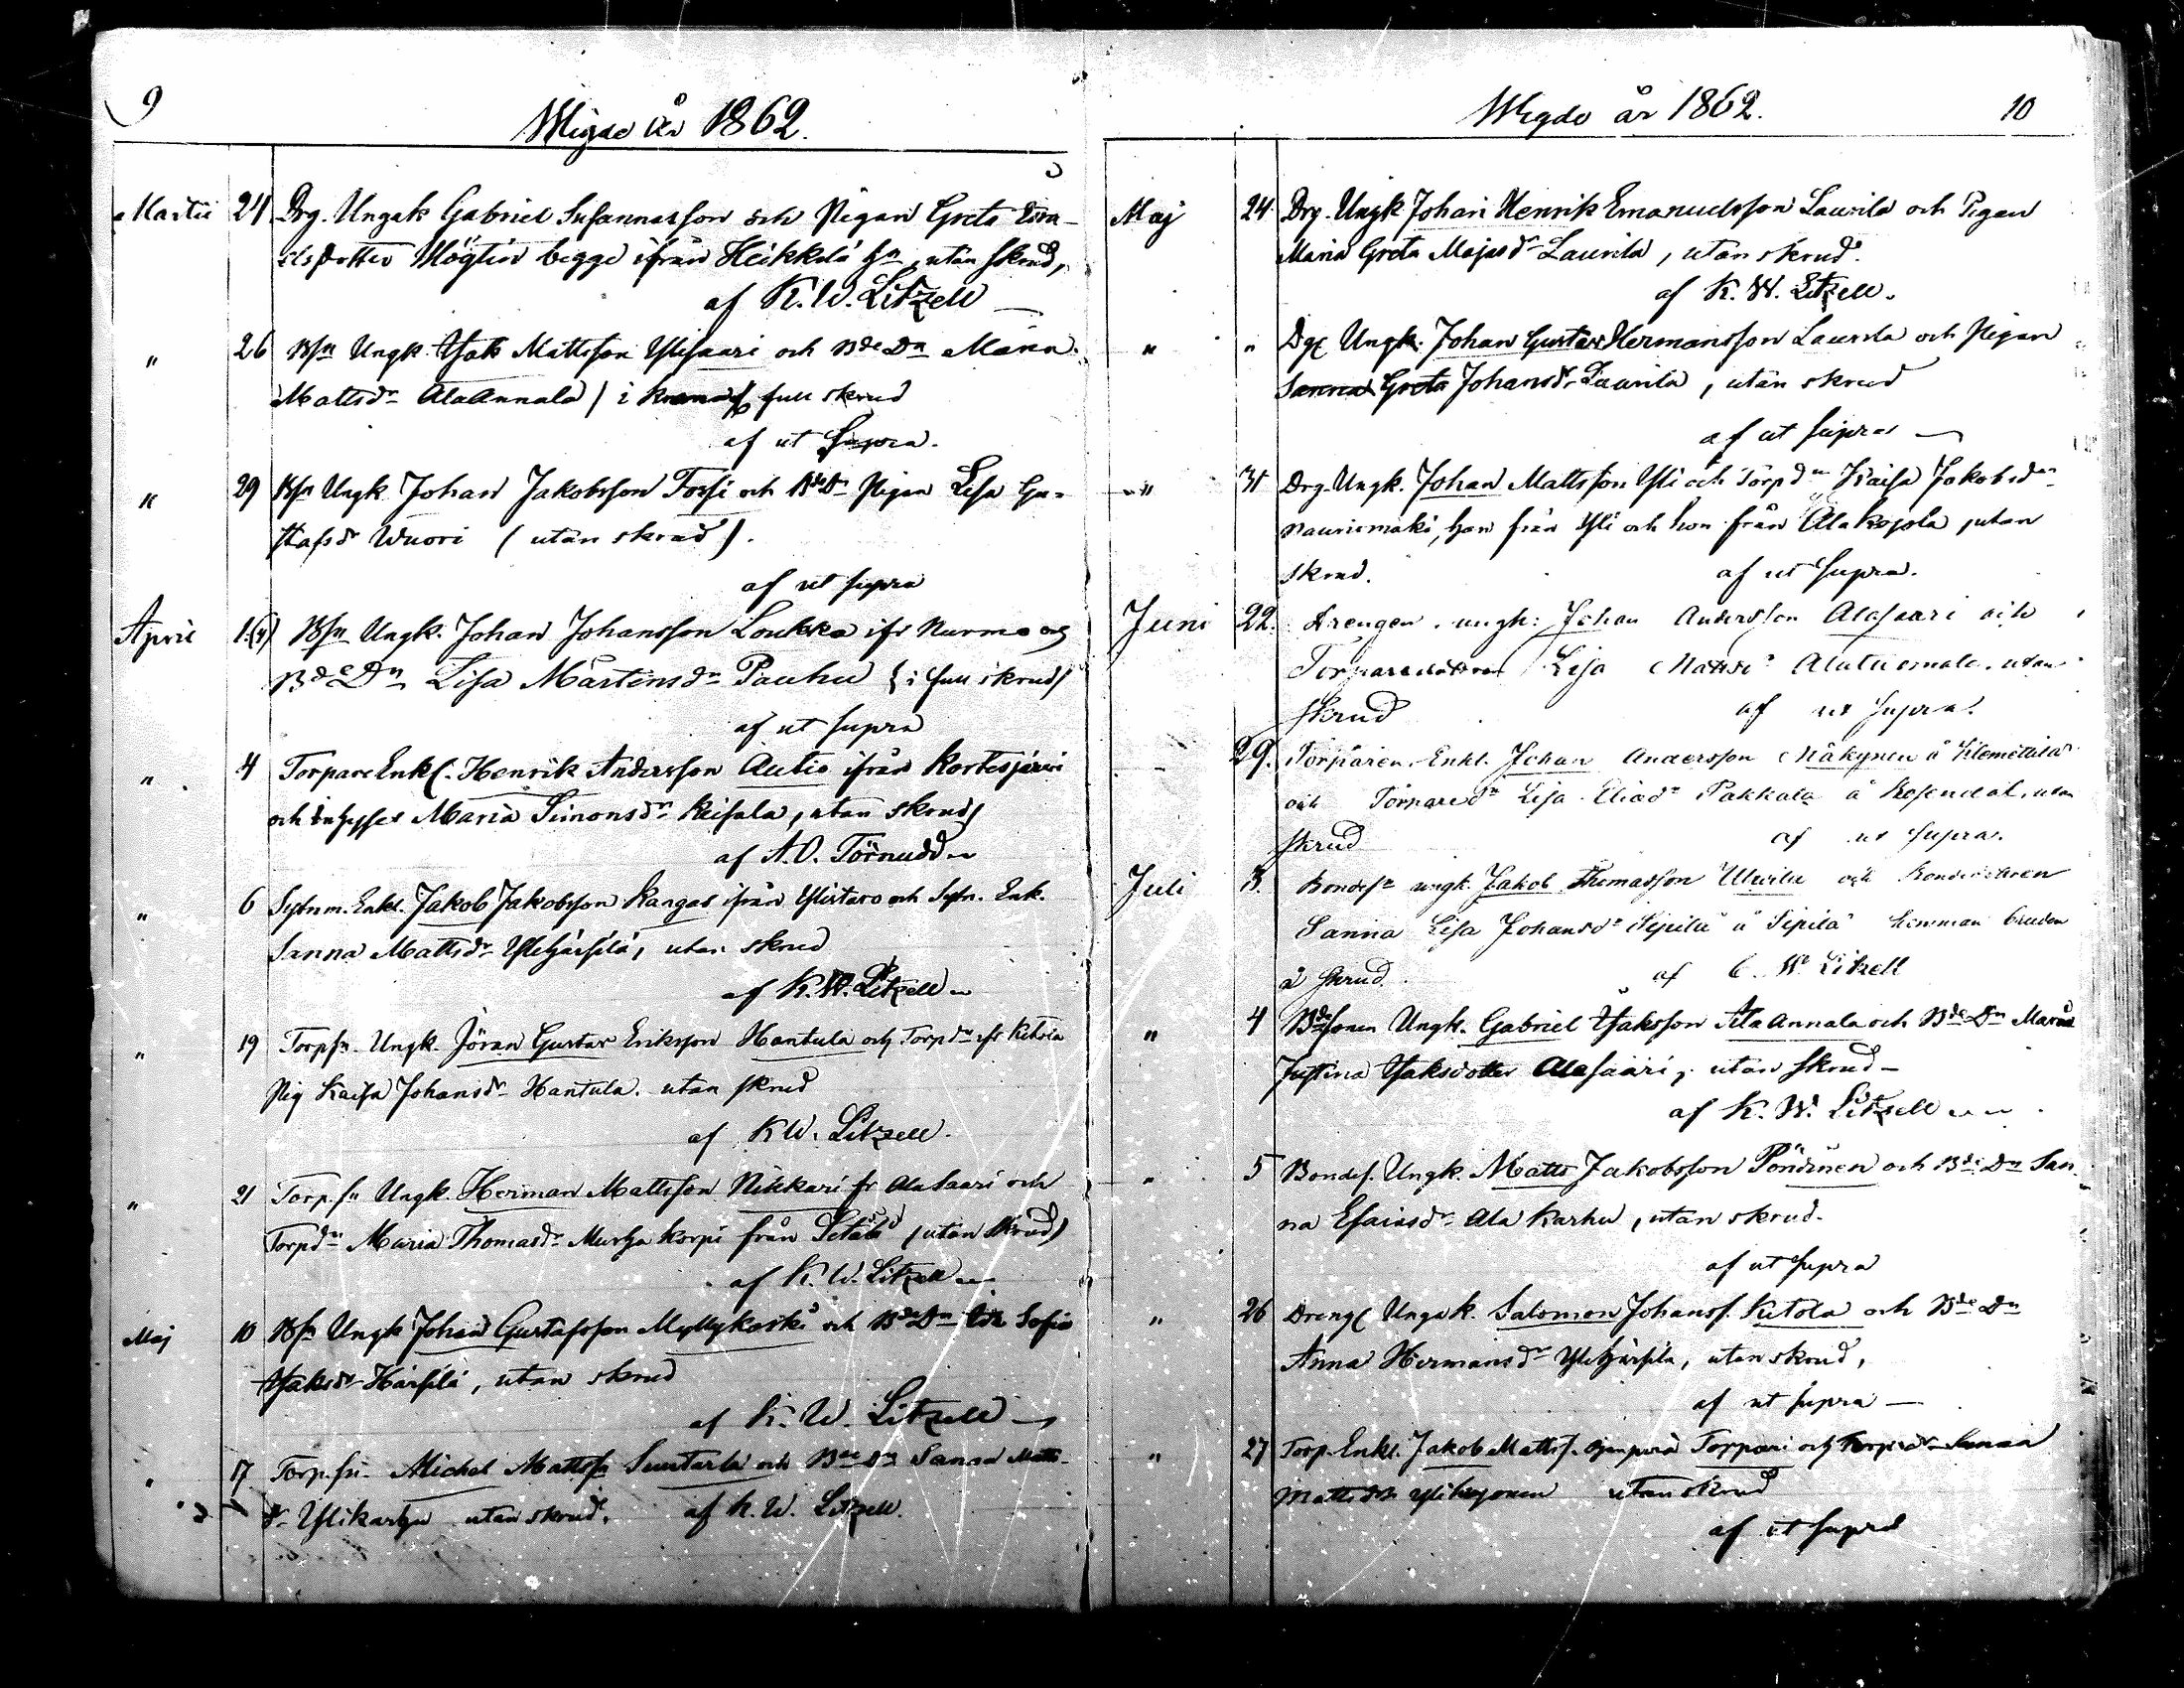 9
Wigde år 1862.
Martii 24 Drg. Ungak Gabriel Susannasson och Pigan Greta Esra-
elsdotter Höglin begge ifrån Heikkilä hn, utan skrud,
af K. W. Litzell
" 26 Bsn Ungk Isak Mattsson Ylisaari och Bde Dn Maria
Mattsdr AlaAnnala / i full skrud
af ut Supra.
" 29 Bsn Ungk Johan Jakobsson Tossi och BdeDn Pigan Lisa Gu-
stafsdr Wuori (utan skrud).
af ut supra
April 1.(4) Bsn Ungk. Johan Johansson Loukko ifr Nurmo och
Bde Dn Lisa Mårtensdr Pauhu (i full skrud)
af ut supra
" 4 Torpare Enkl. Henrik Andersson Autio ifrån Kortesjärvi
och Inhysses Maria Simonsdr Keisala, utan skrud,
af A. O. Törnudd
" 6 Sytnm. Enkl. Jakob Jakobsson Kangas ifrån Ylistaro och Sytn. Enk.
Sanna Mattsdr YliHärsilä, utan skrud
af K. W. Litzell
" 19 Torpsn. Ungk Jöran Gustav Eriksson Hantula och Torpdn ifr Kitola
Pig Kaisa Johansdr Hantula. utan skrud
af K W. Litzell.
" 21 Torp.sn Ungk Herman Mattsson Nikkari fr AlaSaari och
Torpdn Maria Thomasdr Murhakorpi från Setälä (utan skrud)
af K. W. Litzell
Maj 10 Bsn Ungk Johan Gustafsson Myllykoski och BdeDn Sofia
Isaksdr Härsilä, utan skrud
af K. W. Litzell
" 17 Torp.sn Michel Mattss. Suutarla och Bde Dn Sanna Matts-
dr Ylikarhu utan skrud. af K. W. Litzell.
Wigde år 1862. 10
Maj 24 Drg. Ungk Johan Henrik Emanuelsson Laurila och Pigan
Maria Greta Majasdr Laurila, utan skrud.
af K. W. Litzell.
" " Dgr Ungk. Johan Gustav Hermansson Laurila och Pigan
Sanna Greta Johansdr Laurila, utan skrud
af ut supra
" 31 Drg. Ungk. Johan Mattsson Yli och Torpdn Kaisa Jakobsdr
Naurismäki, han från Yli och hon från Alakojola, utan
skrud. af ut Supra.
Juni 22. Drengen. ungk: Johan Andersson Alasaari och
Torparedottren Lisa Mattsdr Alatuomala. utan
skrud af ut supra.
29. Torparen, Enkl. Johan Andersson Mäkynen å Klemettilä
och Torparedr Lisa Eliadr Pakkala å Rosendal, utan
skrud af ut supra.
Juli 3. Bondesn ungk. Jakob Thomasson Ulvila och Bondedottren
Sanna Lisa Johansdr Sipilä å Sipilä hemman bruden
å skrud. af C. W. Litzell
" 4 Bdesonen Ungk. Gabriel Isaksson AlaAnnala och Bde Dn Maria
Justina Isaksdotter Alasaari, utan skrud
af K. W. Litzell
" 5 Bondes. Ungk. Matts Jakobsson Pöndinen och Bde Dn San-
na Esaiasdr Ala Karhu, utan skrud.
af ut supra
" 26 Drengl Ungak. Salomon Johanss. Kitola och Bde Dn
Anna Hermansdr YliHärsilä, utan skrud,
af ut supra
" 27 Torp. Enkl. Jakob Mattss. Torppari och Torpdr Sanna
Mattsdr utan skrud
af ut supra